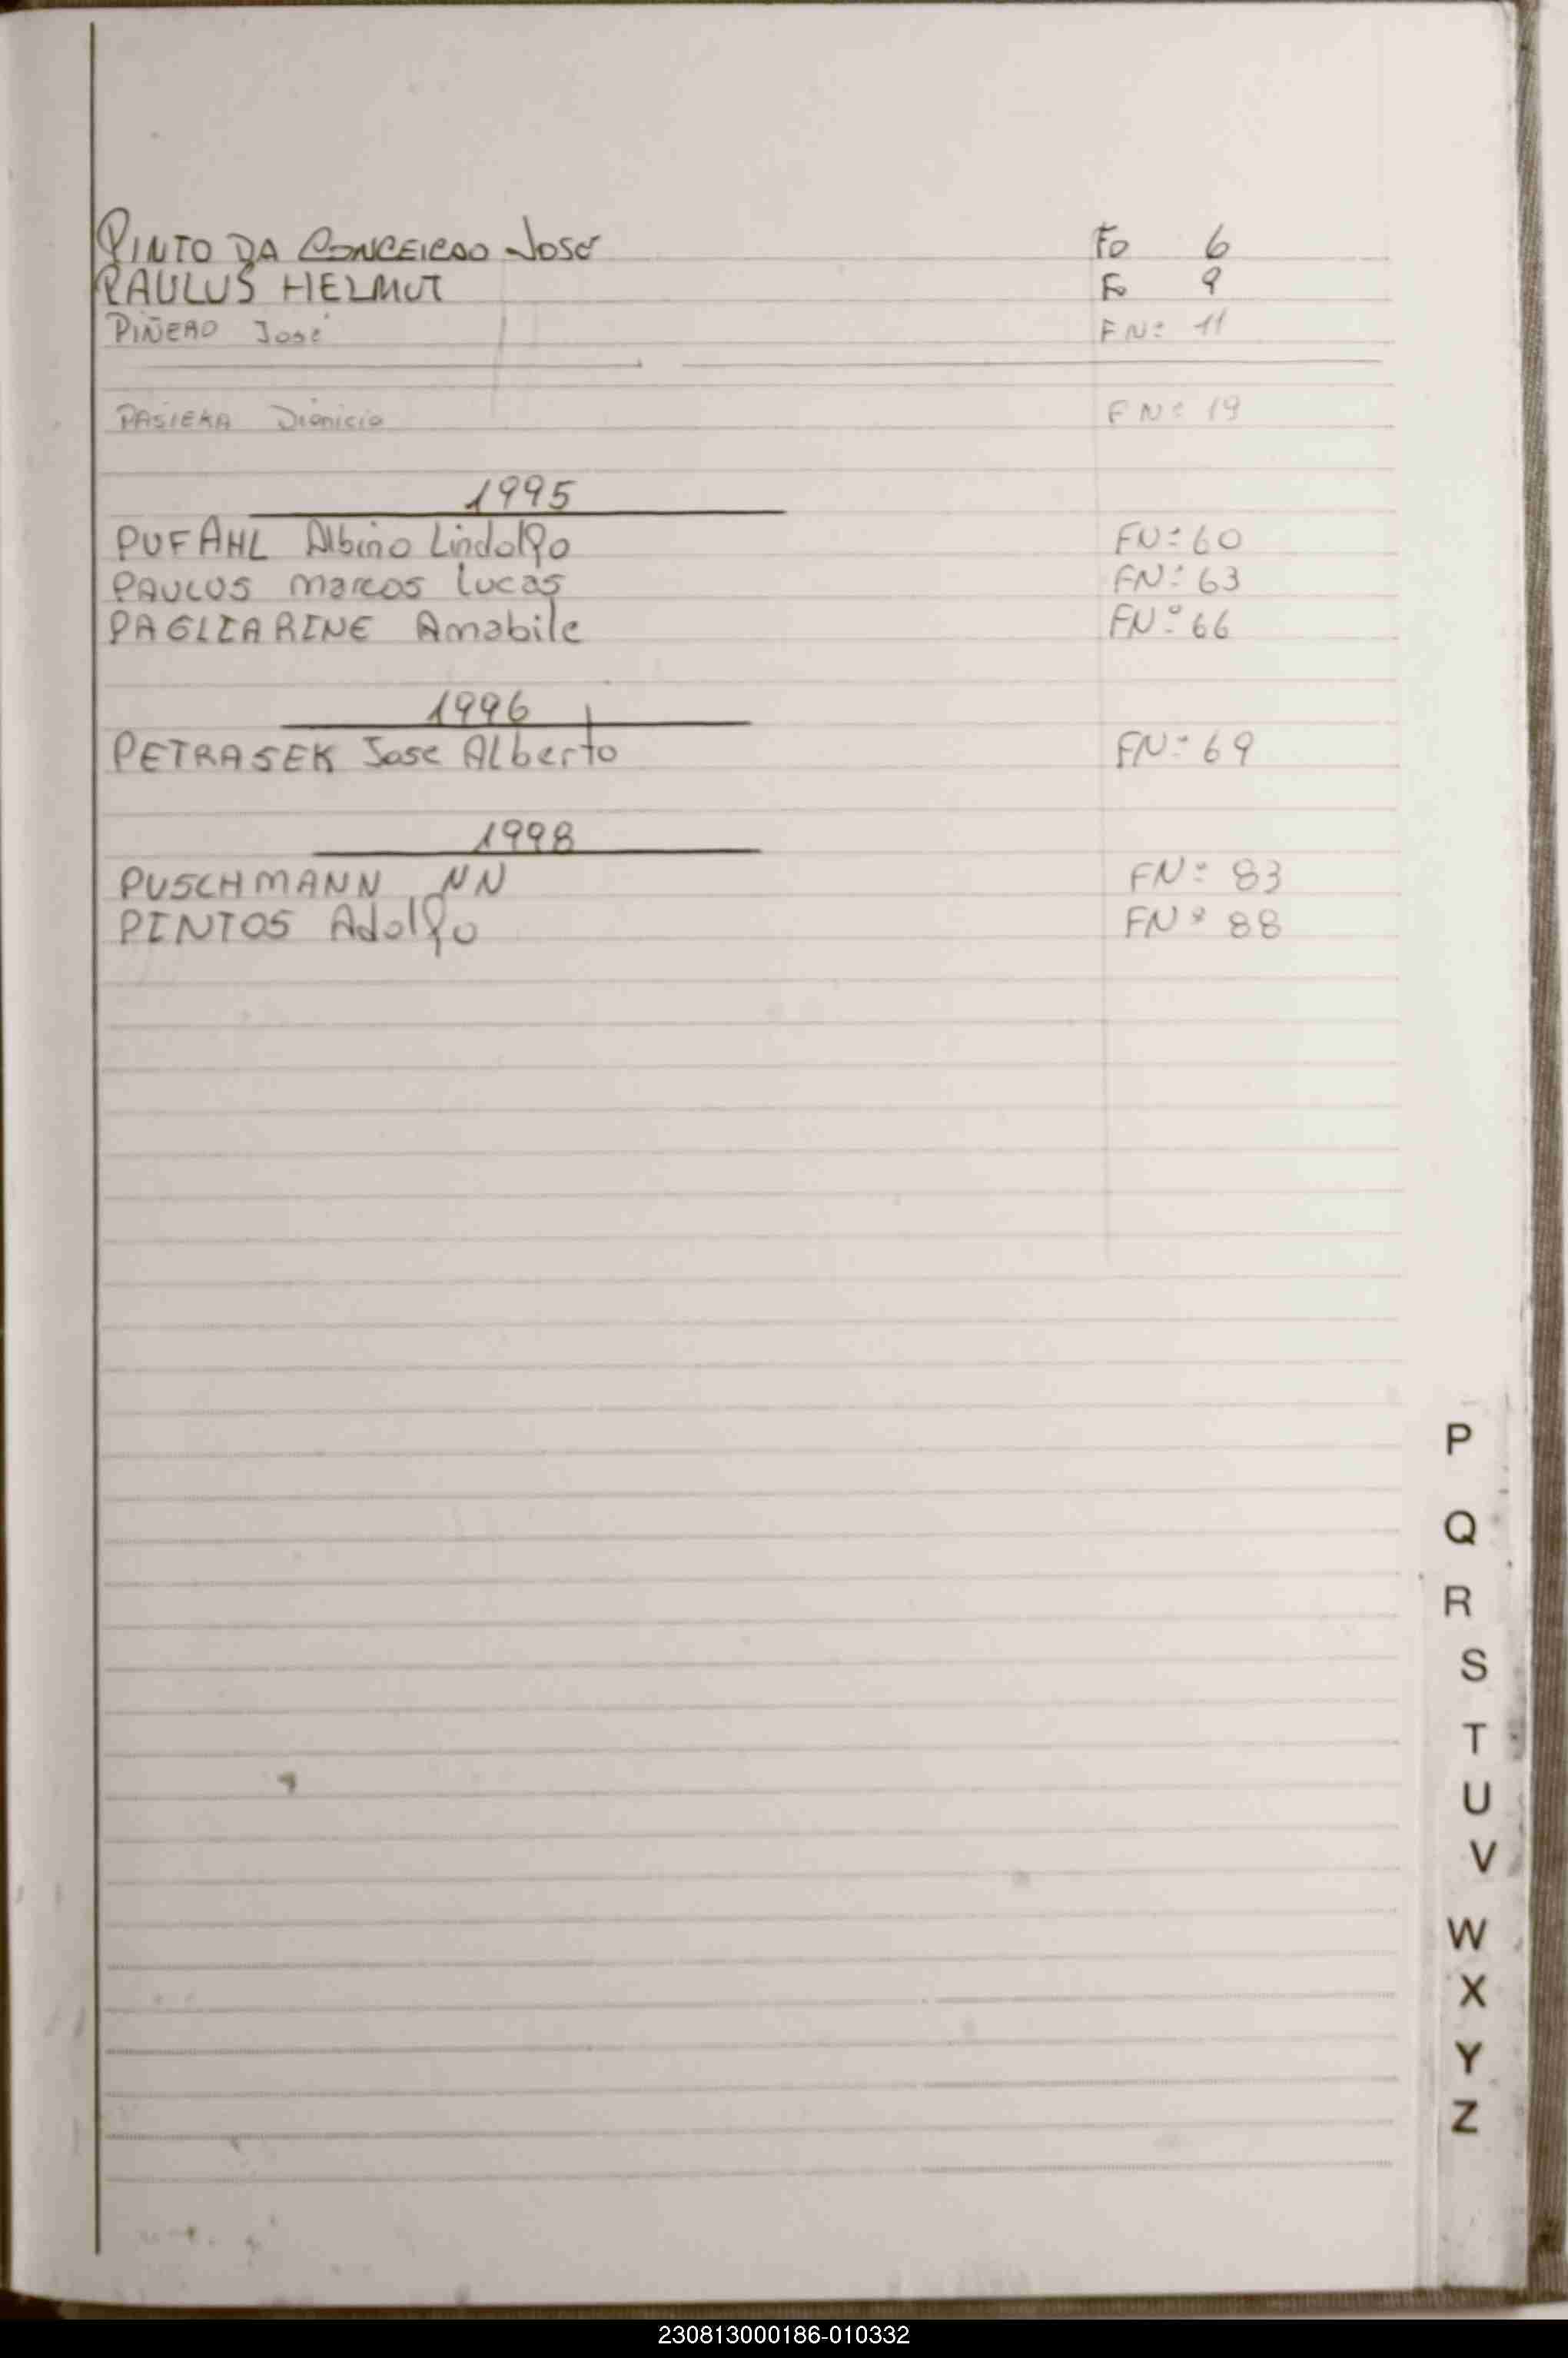 PINTO DA CONCEICAO José Fo 6
PAULUS HELMUT Fo 9
PIÑERO José FNº 11
PASIEKA Dionicio FNº 19
1995
PUFAHL Albino Lindolfo FNº 60
PAULUS Marcos Lucas FNº 63
PAGLIARINE Amabile FNº 66
1996
PETRASEK Jose Alberto FNº 69
1998
PUSCHMANN NN FNº 83
PINTOS Adolfo FNº 88
P
Q
R
S
T
U
V
W
X
Y
Z
230813000186-010332